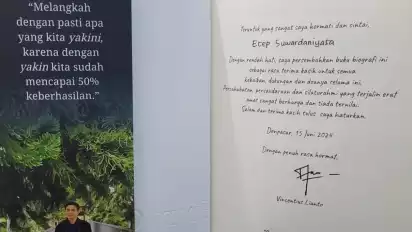 “Melangkah
dengan pasti apa
yang kita yakini,
karena dengan
yakin kita sudah
mencapai 50%
keberhasilan.”
Teruntuk yang sangat saya hormati dan cintai,
Ecep Suwardaniyata
Dengan rendah hati, saya persembahkan buku biografi ini
sebagai rasa terima kasih untuk semua
kebaikan, dukungan dan doanya selama ini.
Persahabatan, persaudaraan dan silaturahmi yang terjalin erat
amat sangat berharga dan tiada ternilai.
Salam dan terima kasih tulus saya haturkan.
Denpasar, 15 Juni 2024
Dengan penuh rasa hormat,
Vincentius Lianto